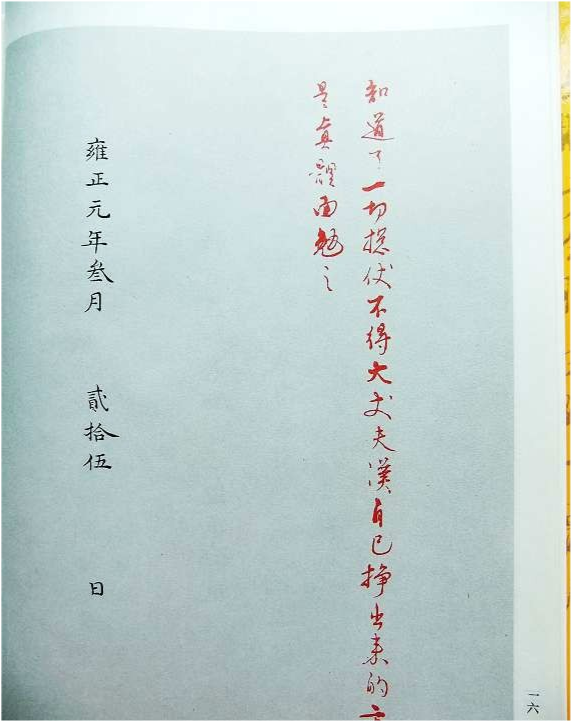 知道了一切揔仗不得大丈夫漢自己挣出来的
是真體面勉之
雍正元年叁月 貳拾伍 日
一六